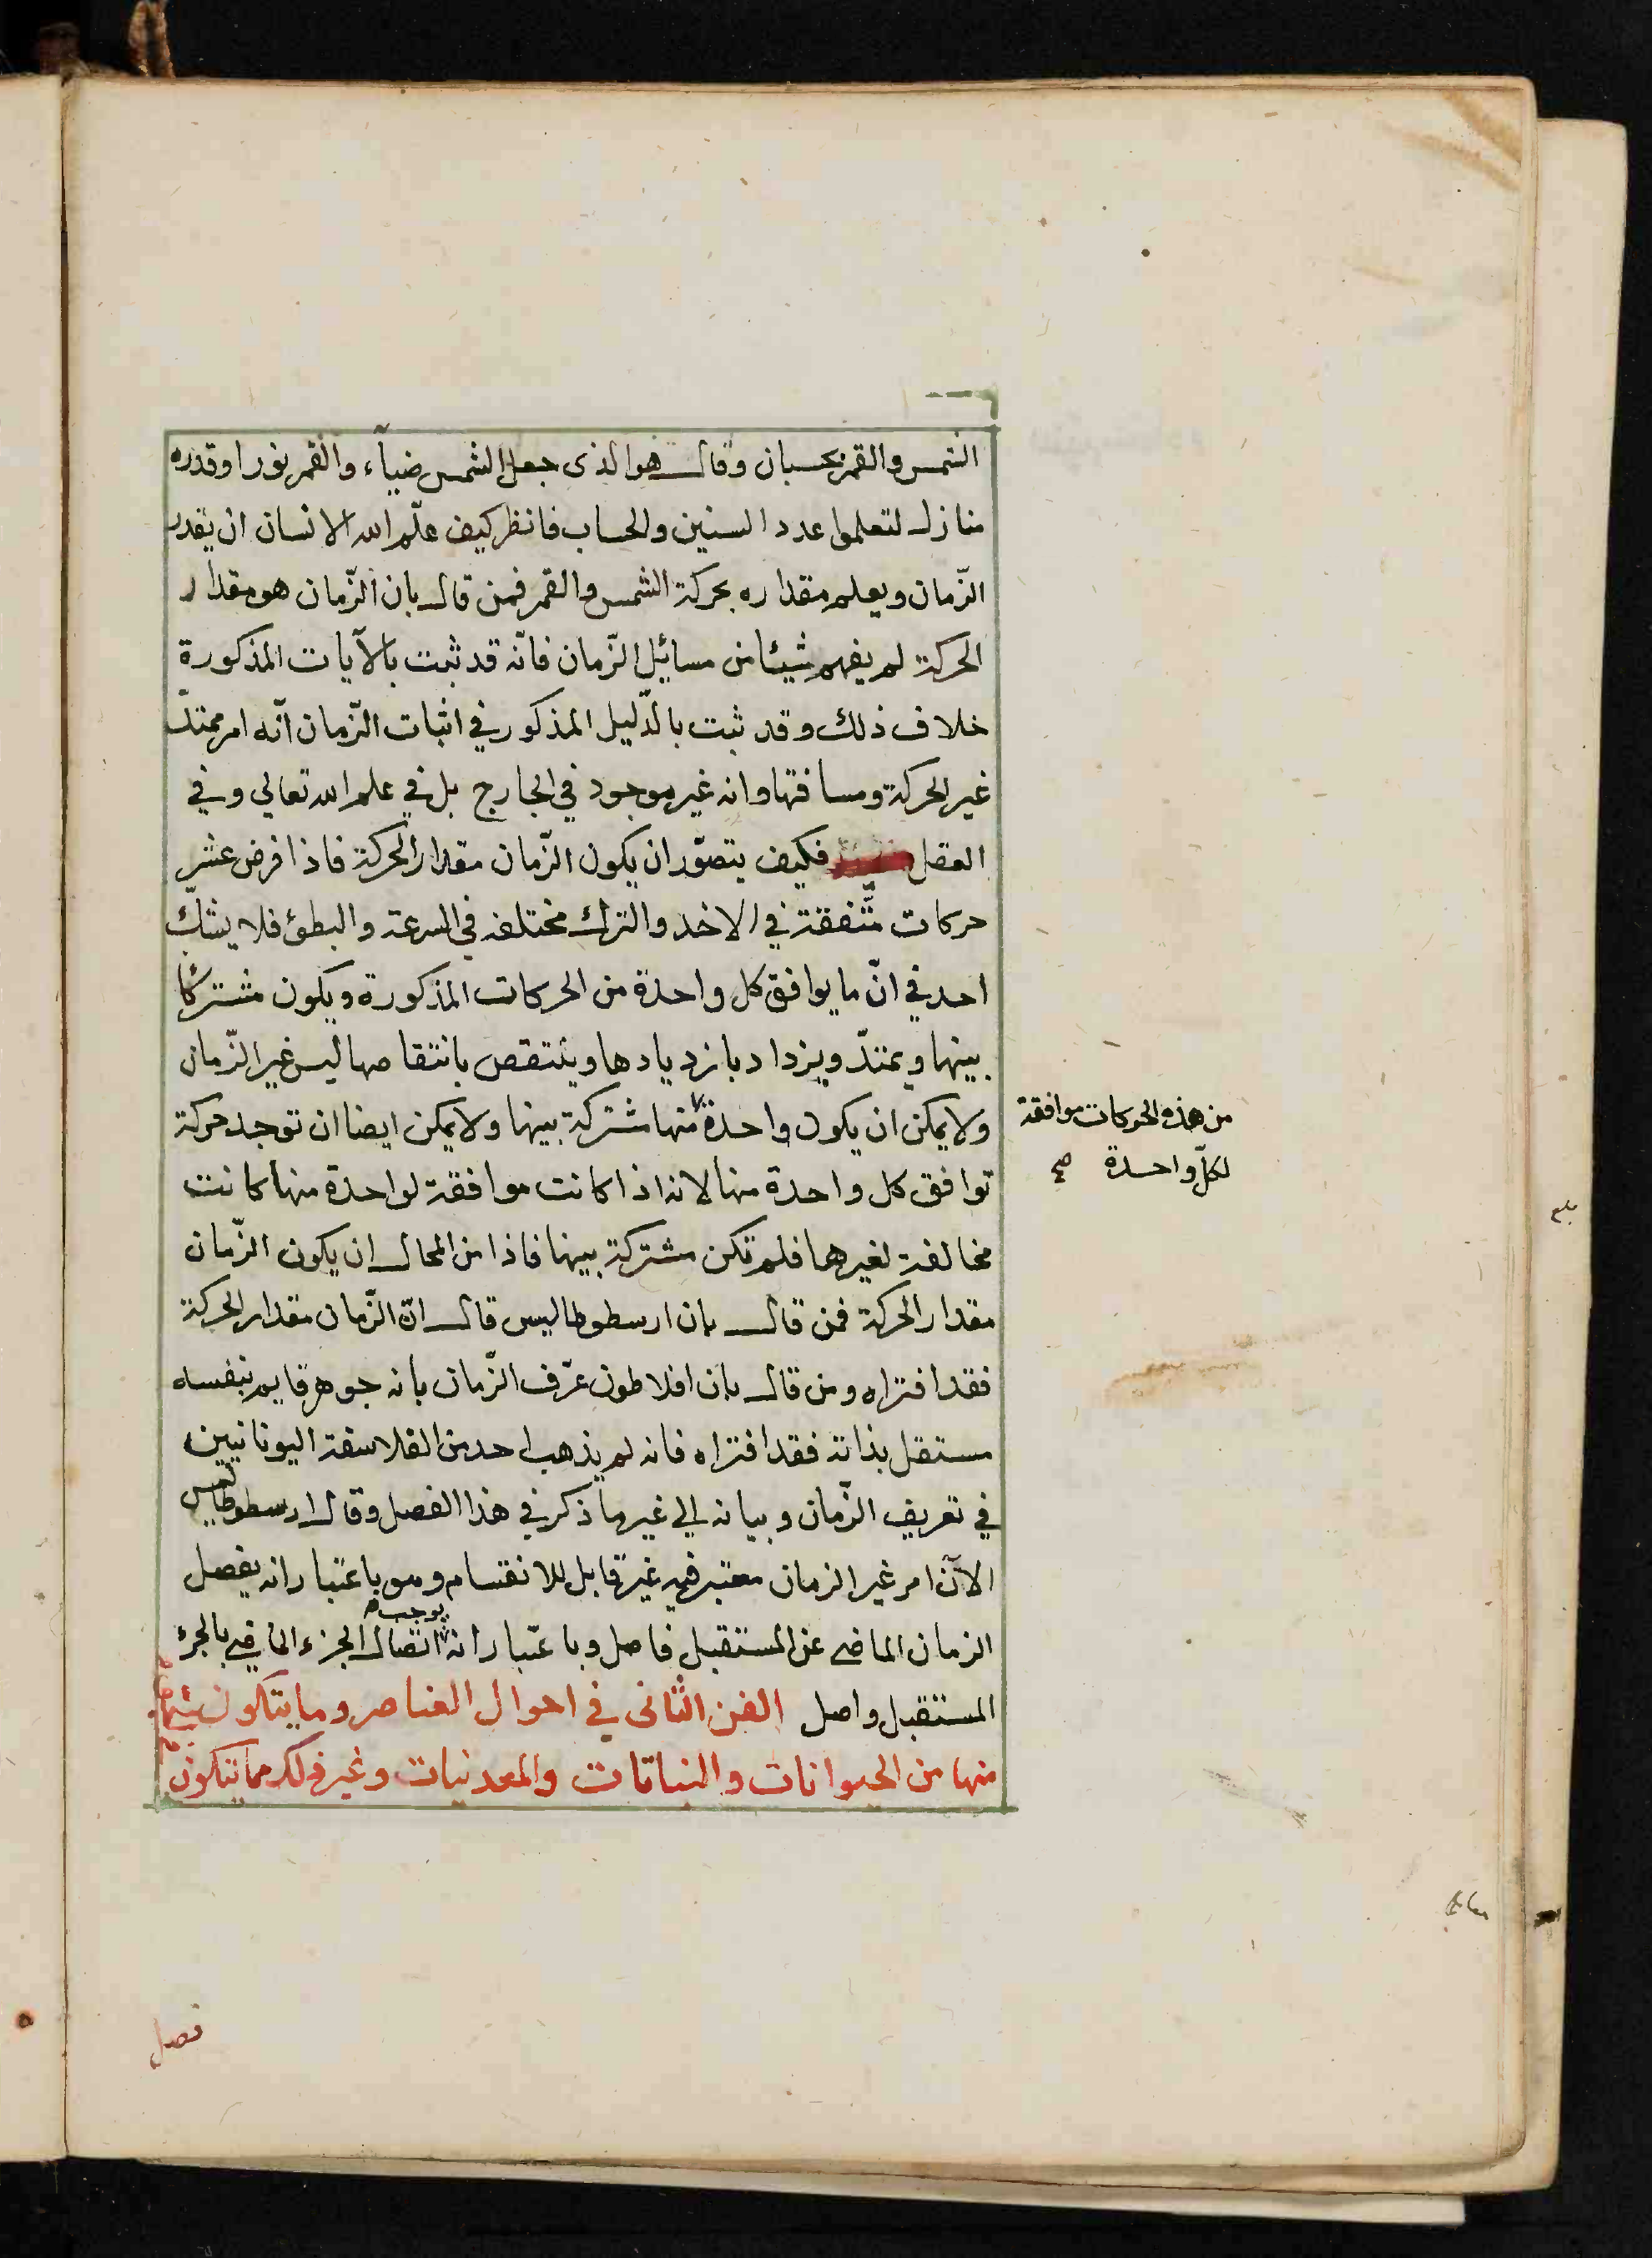 الشمس والقمر بحسبان وقال هو الذى جعل الشمس ضيآء والقمر نورا وقدره
منازل لتعلموا عدد السنين والحساب فانظر كيف علّم الله الانسان ان يقدر
الزّمان ويعلم مقداره بحركة الشمس والقمر فمن قال بان الزّمان هو مقدار
الحركة لم يفهم شيئا من مسائل الزّمان فانّه قد ثبت بالآيات المذكورة
خلاف ذلك وقد ثبت بالدّليل المذكور في اثبات الزّمان انّه امر ممتدّ
غير الحركة ومسافتها وانه غير موجود في الخارج بل في علم الله تعالي وفي
العقل فكيف يتصوّر ان يكون الزّمان مقدار الحركة فاذا فرض عشر
حركات متّفقة في الاخذ والترك مختلفه في السرعة والبطئ فلا يشكّ
احد في انّ ما يوافق كل واحدة من الحركات المذكورة ويكون مشتركًا
بينها ويمتدّ ويزداد بازديادها وينتقص بانتقاصها ليس غير الزّمان
ولا يمكن ان يكون واحدة منها مشتركة بينها ولا يمكن ايضا ان توجد حركة
من هذه الحركات موافقة
لكلّ واحدة صح
توافق كل واحدة منها لانه اذا كانت موافقة لواحدة منها كانت
مخالفة لغيرها فلم تكن مشتركة بينها فاذا من المحال ان يكون الزّمان
مقدار الحركة فمن قال بان ارسطوطاليس قال انّ الزّمان مقدار الحركة
فقد افتراه ومن قال بان افلاطون عرّف الزّمان بانه جوهر قايم بنفسه
مستقل بذاته فقد افتراه فانه لم يذهب احد من الفلاسفة اليونانيين
في تعريف الزّمان وبيانه الي غير ما ذكر في هذا الفصل وقال ارسطوطاليس
الآن امر غير الزمان معتبر فيه غير قابل للانقسام وهو باعتبار انه يفصل
الزمان الماضي عن المستقبل فاصل وباعتبار انه يوجب اتصال الجزء الماضي بالجزء
المستقبل واصل الفن الثانى في احوال العناصر وما يتكون
منها من الحيوانات والنباتات والمعدنيات وغير ذلك مما يتكون
فصل